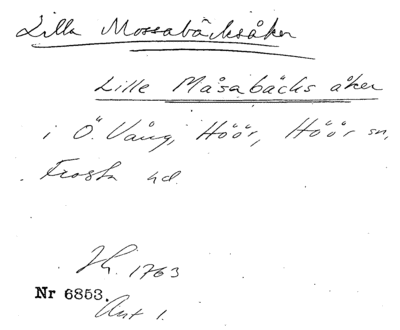 Lilla Mossabäcksåker
Lille Måsabäcks åker
i Ö. Vång, Höör, Höör sn,
Frosta hd.
1763
Nr 6853.
Akt 1.